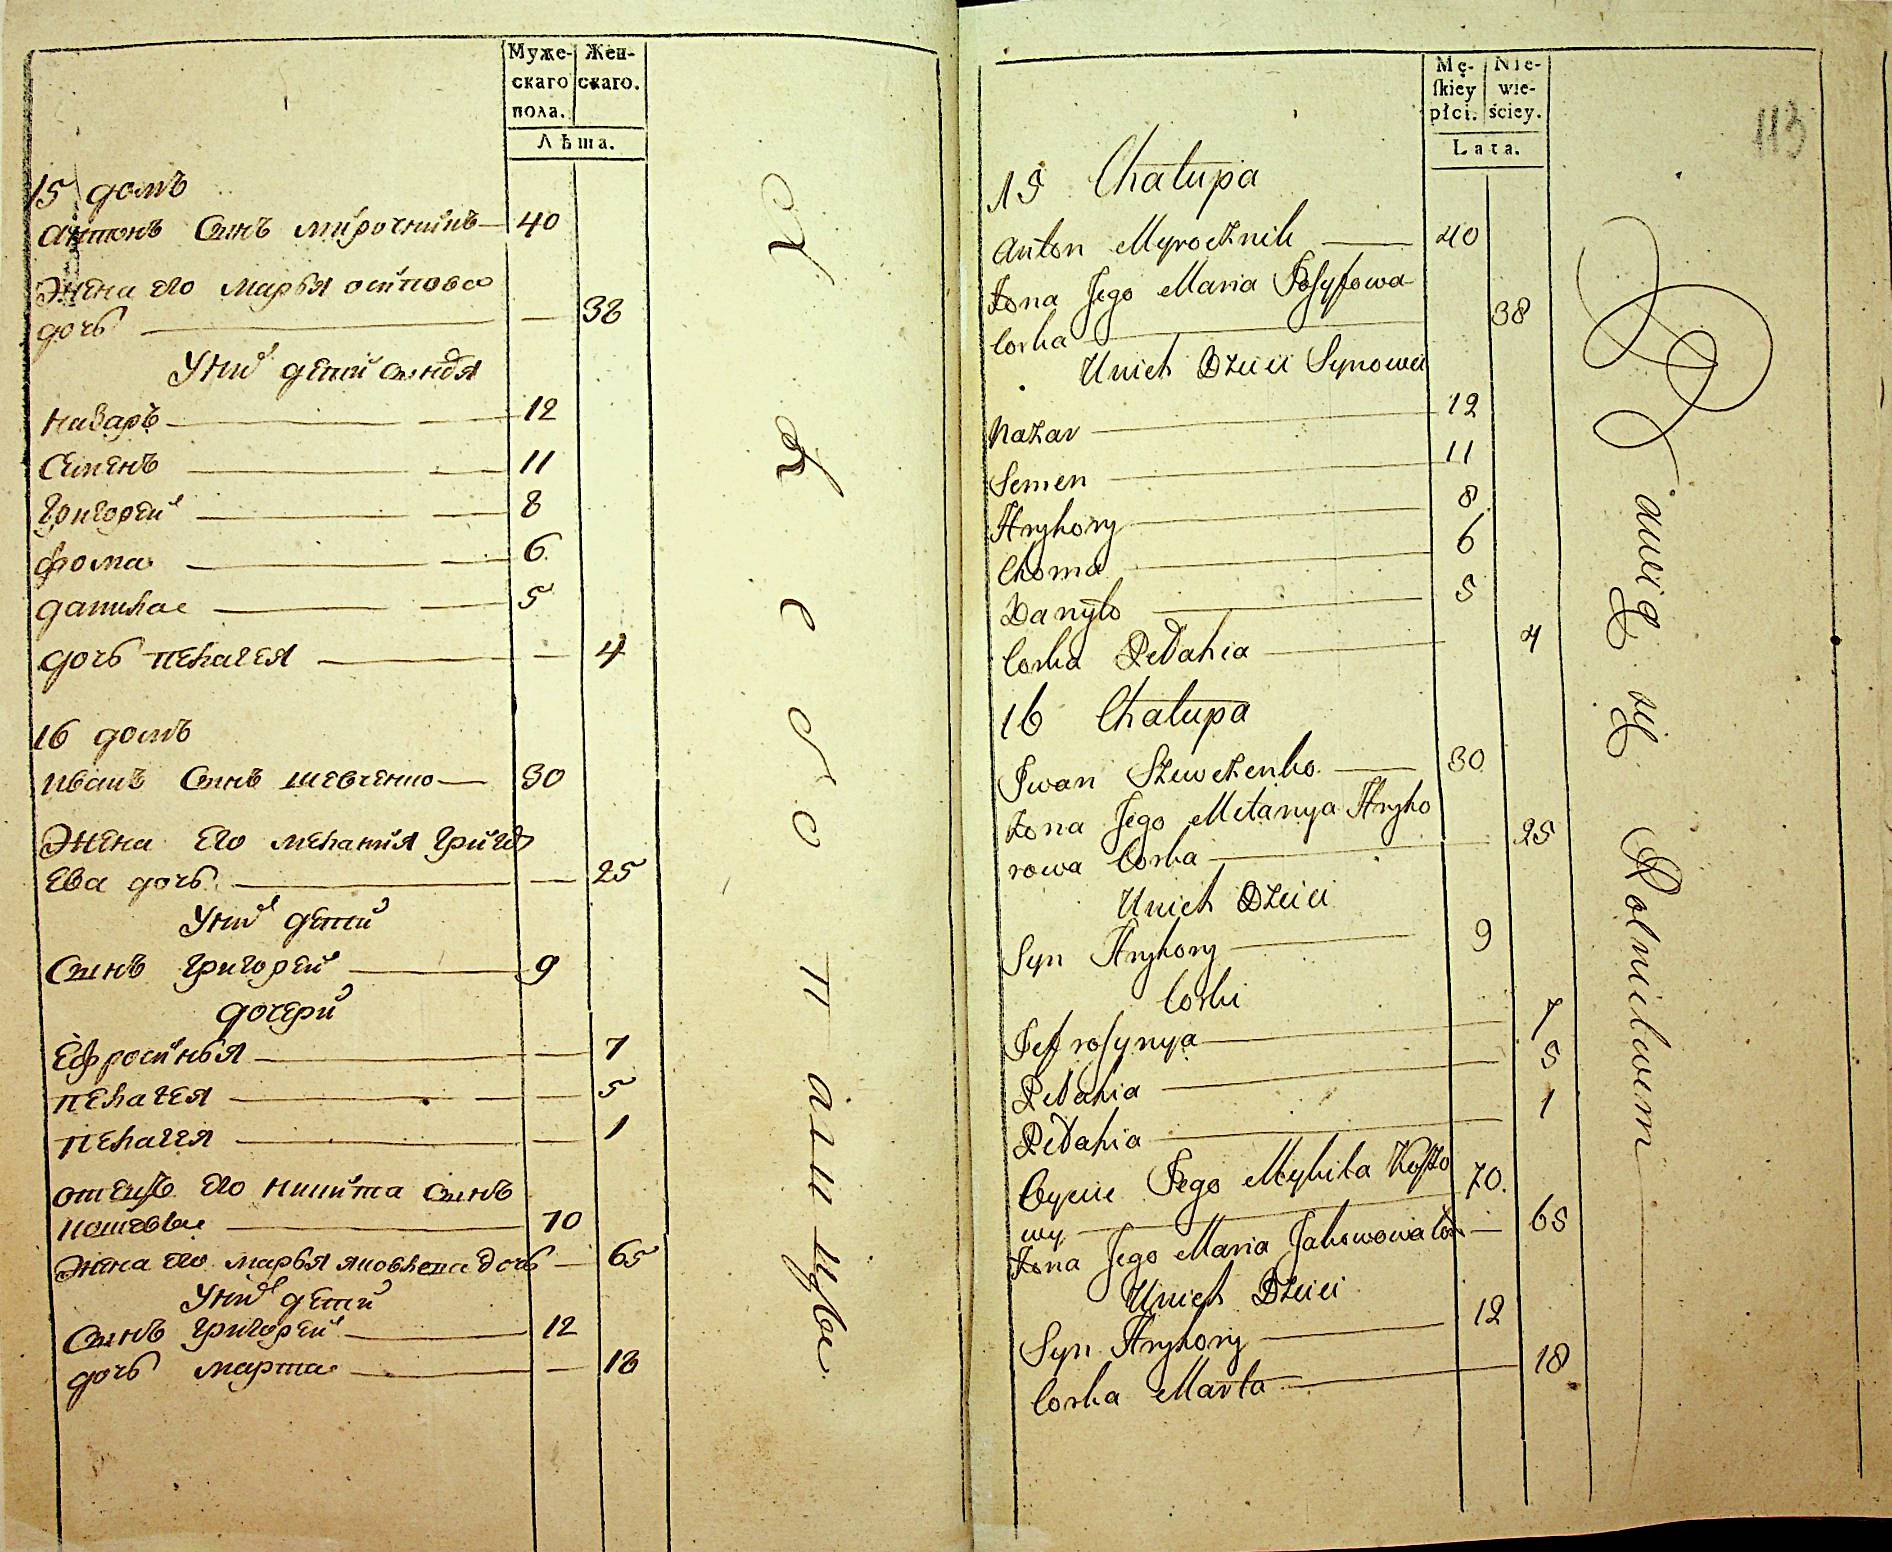 Муже-
скаго
пола.
Жен-
скаго.
Лѣта.
15 домъ
Антонъ Сынъ мирочникъ 40
Жена его марья осипова
дочь 38
У них детей сыновя
Назаръ 12
Семенъ 11
Григорей 8
фома 6
данила 5
дочь пелагея 4
16 домъ
иванъ Сынъ шевченко 30
Жена его мелания Григор
Ева дочь 25
У них детей
Сынъ Григорей 9
дочери
Ефросинья 7
пелагея 5
пелагея 1
отецъ его никита сынъ
70
Жена его марья яковлева дочь 65
У них детей
Сынъ Григорей 12
дочь марта 18
Хлебо пашцы
Mę-
skiey
płci.
Nie-
wie-
ściey.
Lata.
113
15 Chałupa
Anton Myrocznik 40
Żona Jego Maria Josyfowa
Corka 38
Unich Dzieci Synowie
Nazar 12
Semen 11
Hryhory 8
Choma 6
Danyło 5
Corka Pełahia 4
16 Chałupa
Iwan Szewczenko 30
Żona Jego Mełanya Hryho
rowa Corka 25
Unich Dzieci
Syn Hryhory 9
Corki
Jefrosynya 7
Pełahia 5
Pełahia 1
Oyciec Jego Mykita Kosto
wy 70.
Żona Jego Maria Jakowowa Cor 65
Unich Dzieci
Syn Hryhory 12
Corka Marta 18
Bawią się Rolnictwem